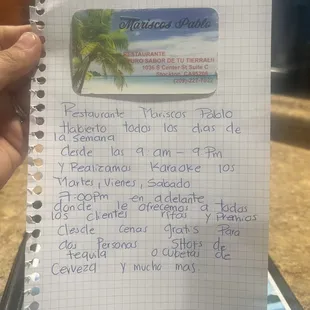 Mariscos Pablo
RESTAURANTE
PURO SABOR DE TU TIERRA!!!
Stockton, CA
Restaurante Mariscos Pablo
Habierto todos los dias de
la semana
desde las 9 am - 9 Pm
y Realizamos Karaoke los
Martes, Vienes, Sabado
7:00Pm en adelante
donde le ofrecemos a todos
los clientes rifas y Premios
desde cenas gratis Para
dos Personas Shots de
tequila o cubetas de
Cerveza y mucho mas.